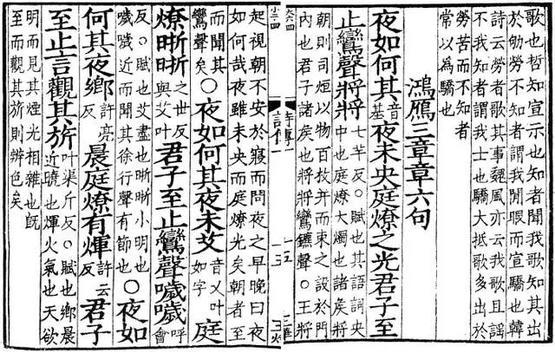 歌也哲知宣示也知者聞我歌知其出
於劬勞不知者謂我閒暇而宣驕也韓
詩云勞者歌其事魏風亦云我歌且謠
不我知者謂我士也驕大抵歌多出於
勞苦而不知者
常以爲驕也
鴻鴈三章章六句
夜如何其音基夜未央庭燎之光君子至
止鸞聲將將七羊反○賦也其語詞央
中也庭燎大燭也諸矦將
朝則司烜以物百枚并而束之設於門
內也君子諸矦也將將鸞鑣聲○王將
起視朝不安於寢而問夜之早晚曰夜
如何哉夜雖未央而庭燎光矣朝者至
而聞其
鸞聲矣○夜如何其夜未艾音乂叶如字庭
燎晣晣之世反與艾叶君子至止鸞聲噦噦呼會
反○賦也艾盡也晣晣小明也
噦噦近而聞其徐行聲有節也○夜如
何其夜鄉許亮反晨庭燎有煇許云反君子
至止言觀其旂叶渠斤反○賦也鄉晨
近曉也煇火氣也天欲
明而見其煙光相雜也旣
至而觀其旂則辨色矣